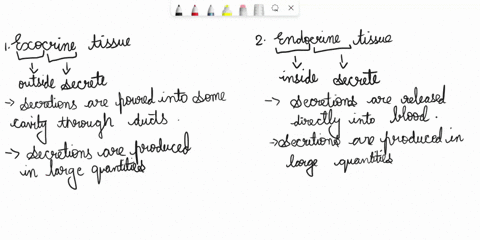 1. Exocrine tissue
outside secrete
→ secretions are powred into some
cavity through ducts.
→ secretions are produced
in large quantities
2. Endocrine tissue
inside secrete
→ secretions are released
directly into blood.
→ secretions are produced in
large quantities